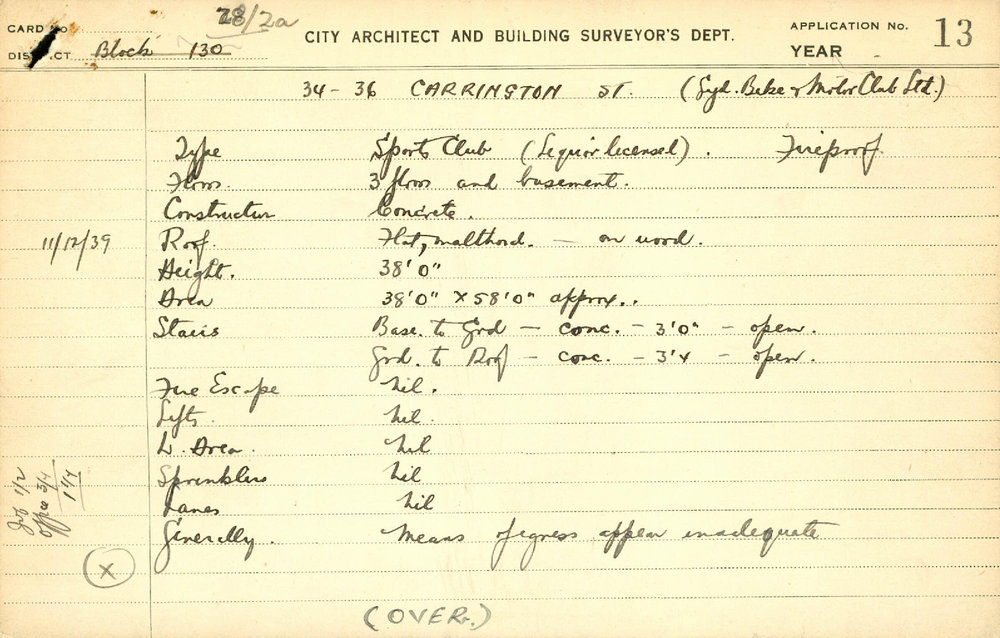 28/2a
CARD No
CITY ARCHITECT AND BUILDING SURVEYOR'S DEPT.
APPLICATION No. 13
DISTRICT Block 130
YEAR
34 - 36 CARRINGTON ST. (Syd. Bike & Motor Club Ltd.)
Type Sports Club (Liquor licensed). Fireproof
Floors. 3 floors and basement.
Construction Concrete.
11/12/39 Roof. Flat, malthoid. — on wood.
Height. 38'0"
Area 38'0" x 58'0" approx..
Stairs Base. to Grd — conc. — 3'0" — open.
Grd. to Roof — conc. — 3'4 — open.
Fire Escape nil.
Lifts. nil.
L. Area. nil
Sprinklers nil
Lanes nil
Generally. Means of egress appear inadequate
Job 1/2
office 3/4
1 1/4
X
(OVER.)